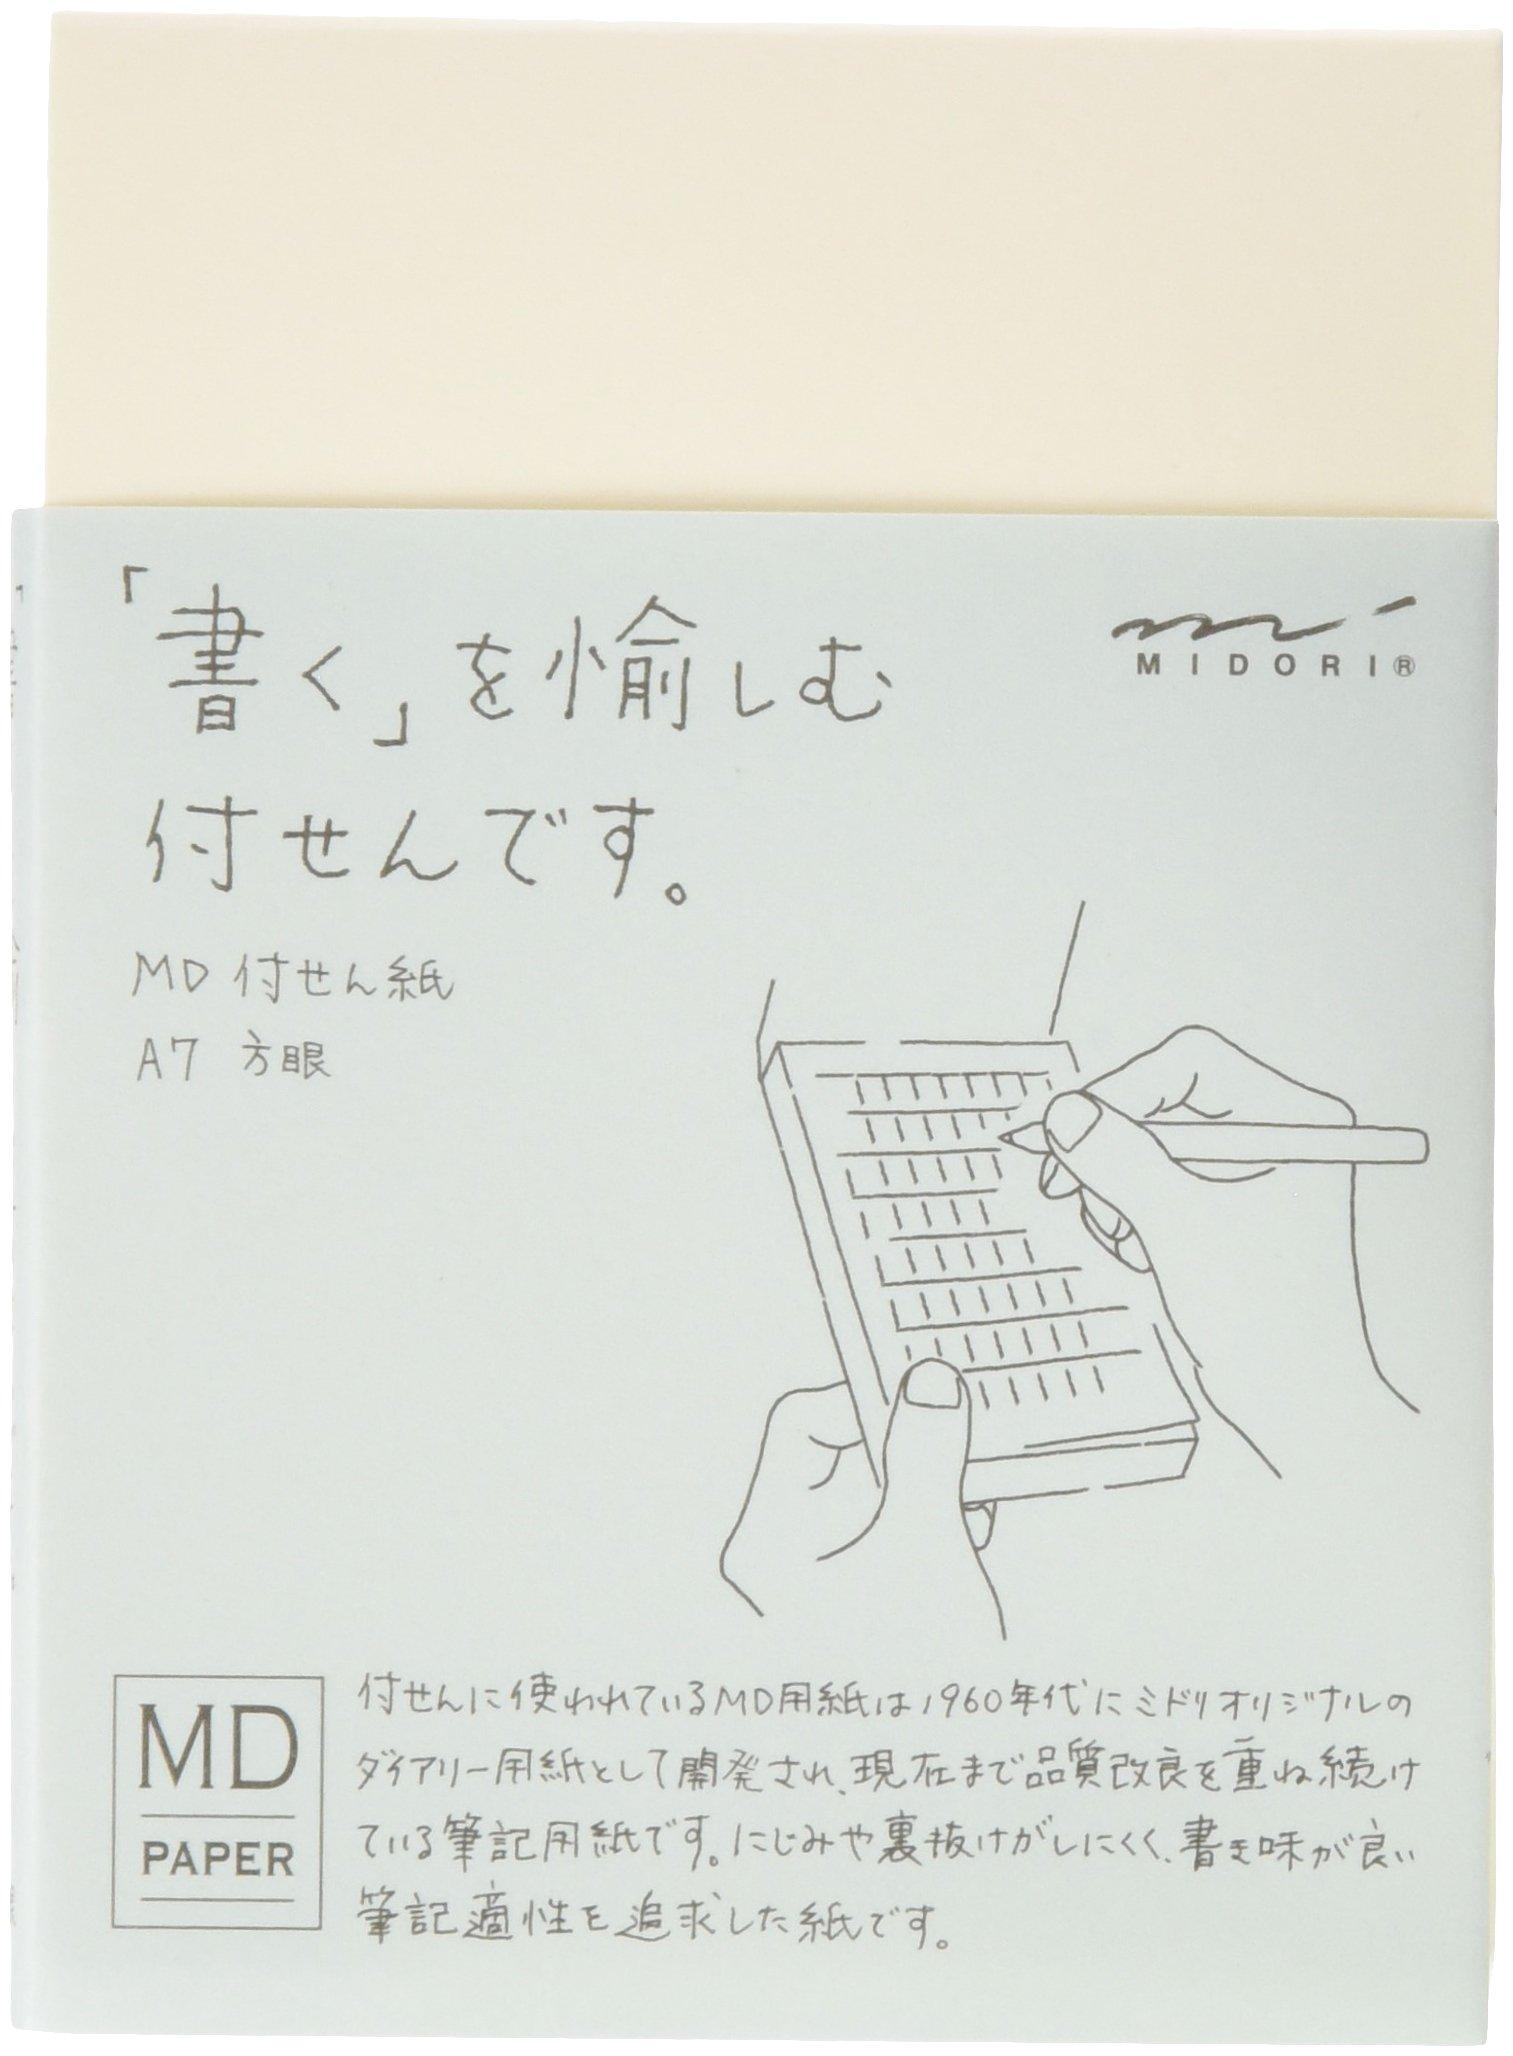 「書く」を愉しむ
付せんです。
MIDORI®
MD 付せん紙
A7 方眼
MD
PAPER
付せんに使われているMD用紙は1960年代にミドリオリジナルの
ダイアリー用紙として開発され、現在まで品質改良を重ね続け
ている筆記用紙です。にじみや裏抜けがしにくく、書き味が良い
筆記適性を追求した紙です。